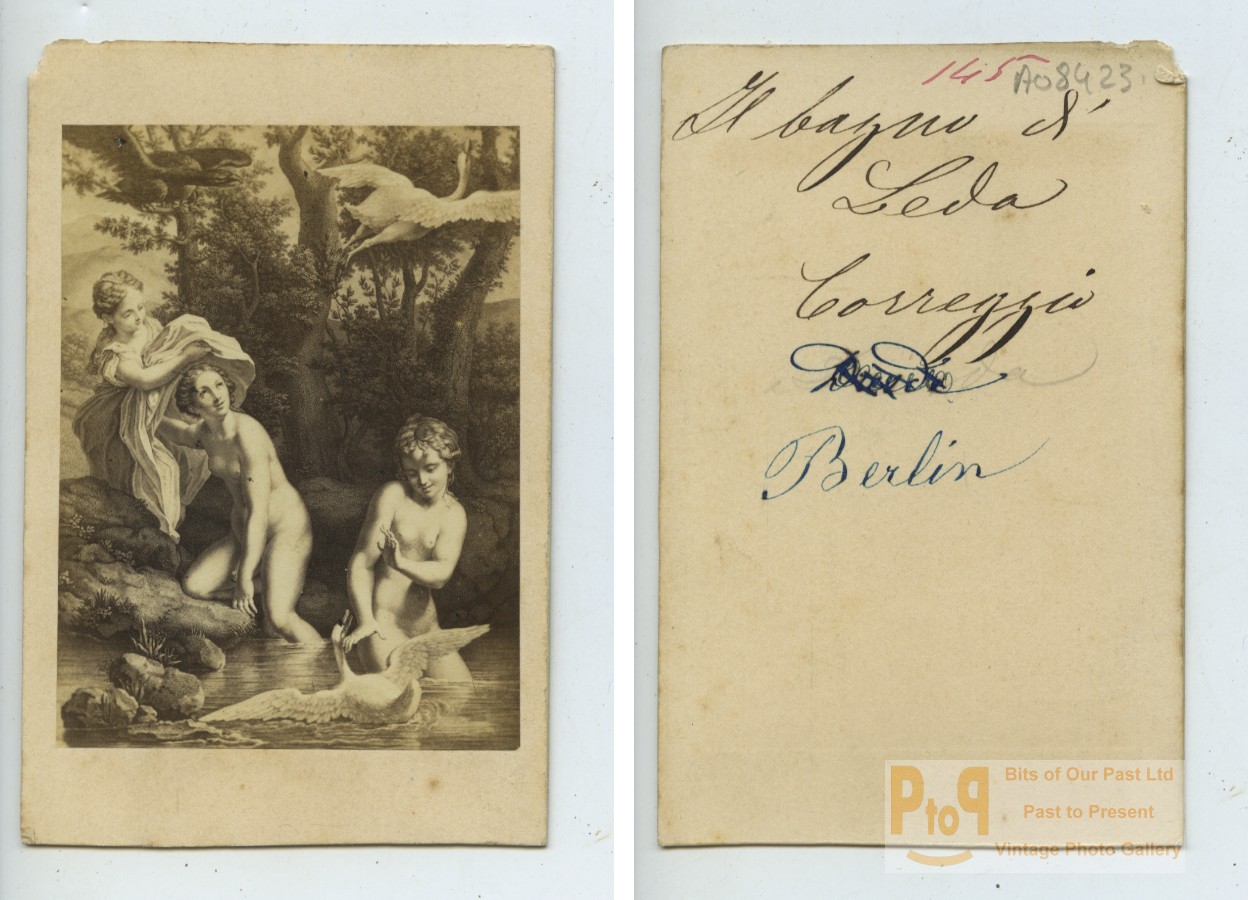 145 A08423.
Il bagno di
Leda
Correggio
Berlin
PtoP
Bits of Our Past Ltd
Past to Present
Vintage Photo Gallery